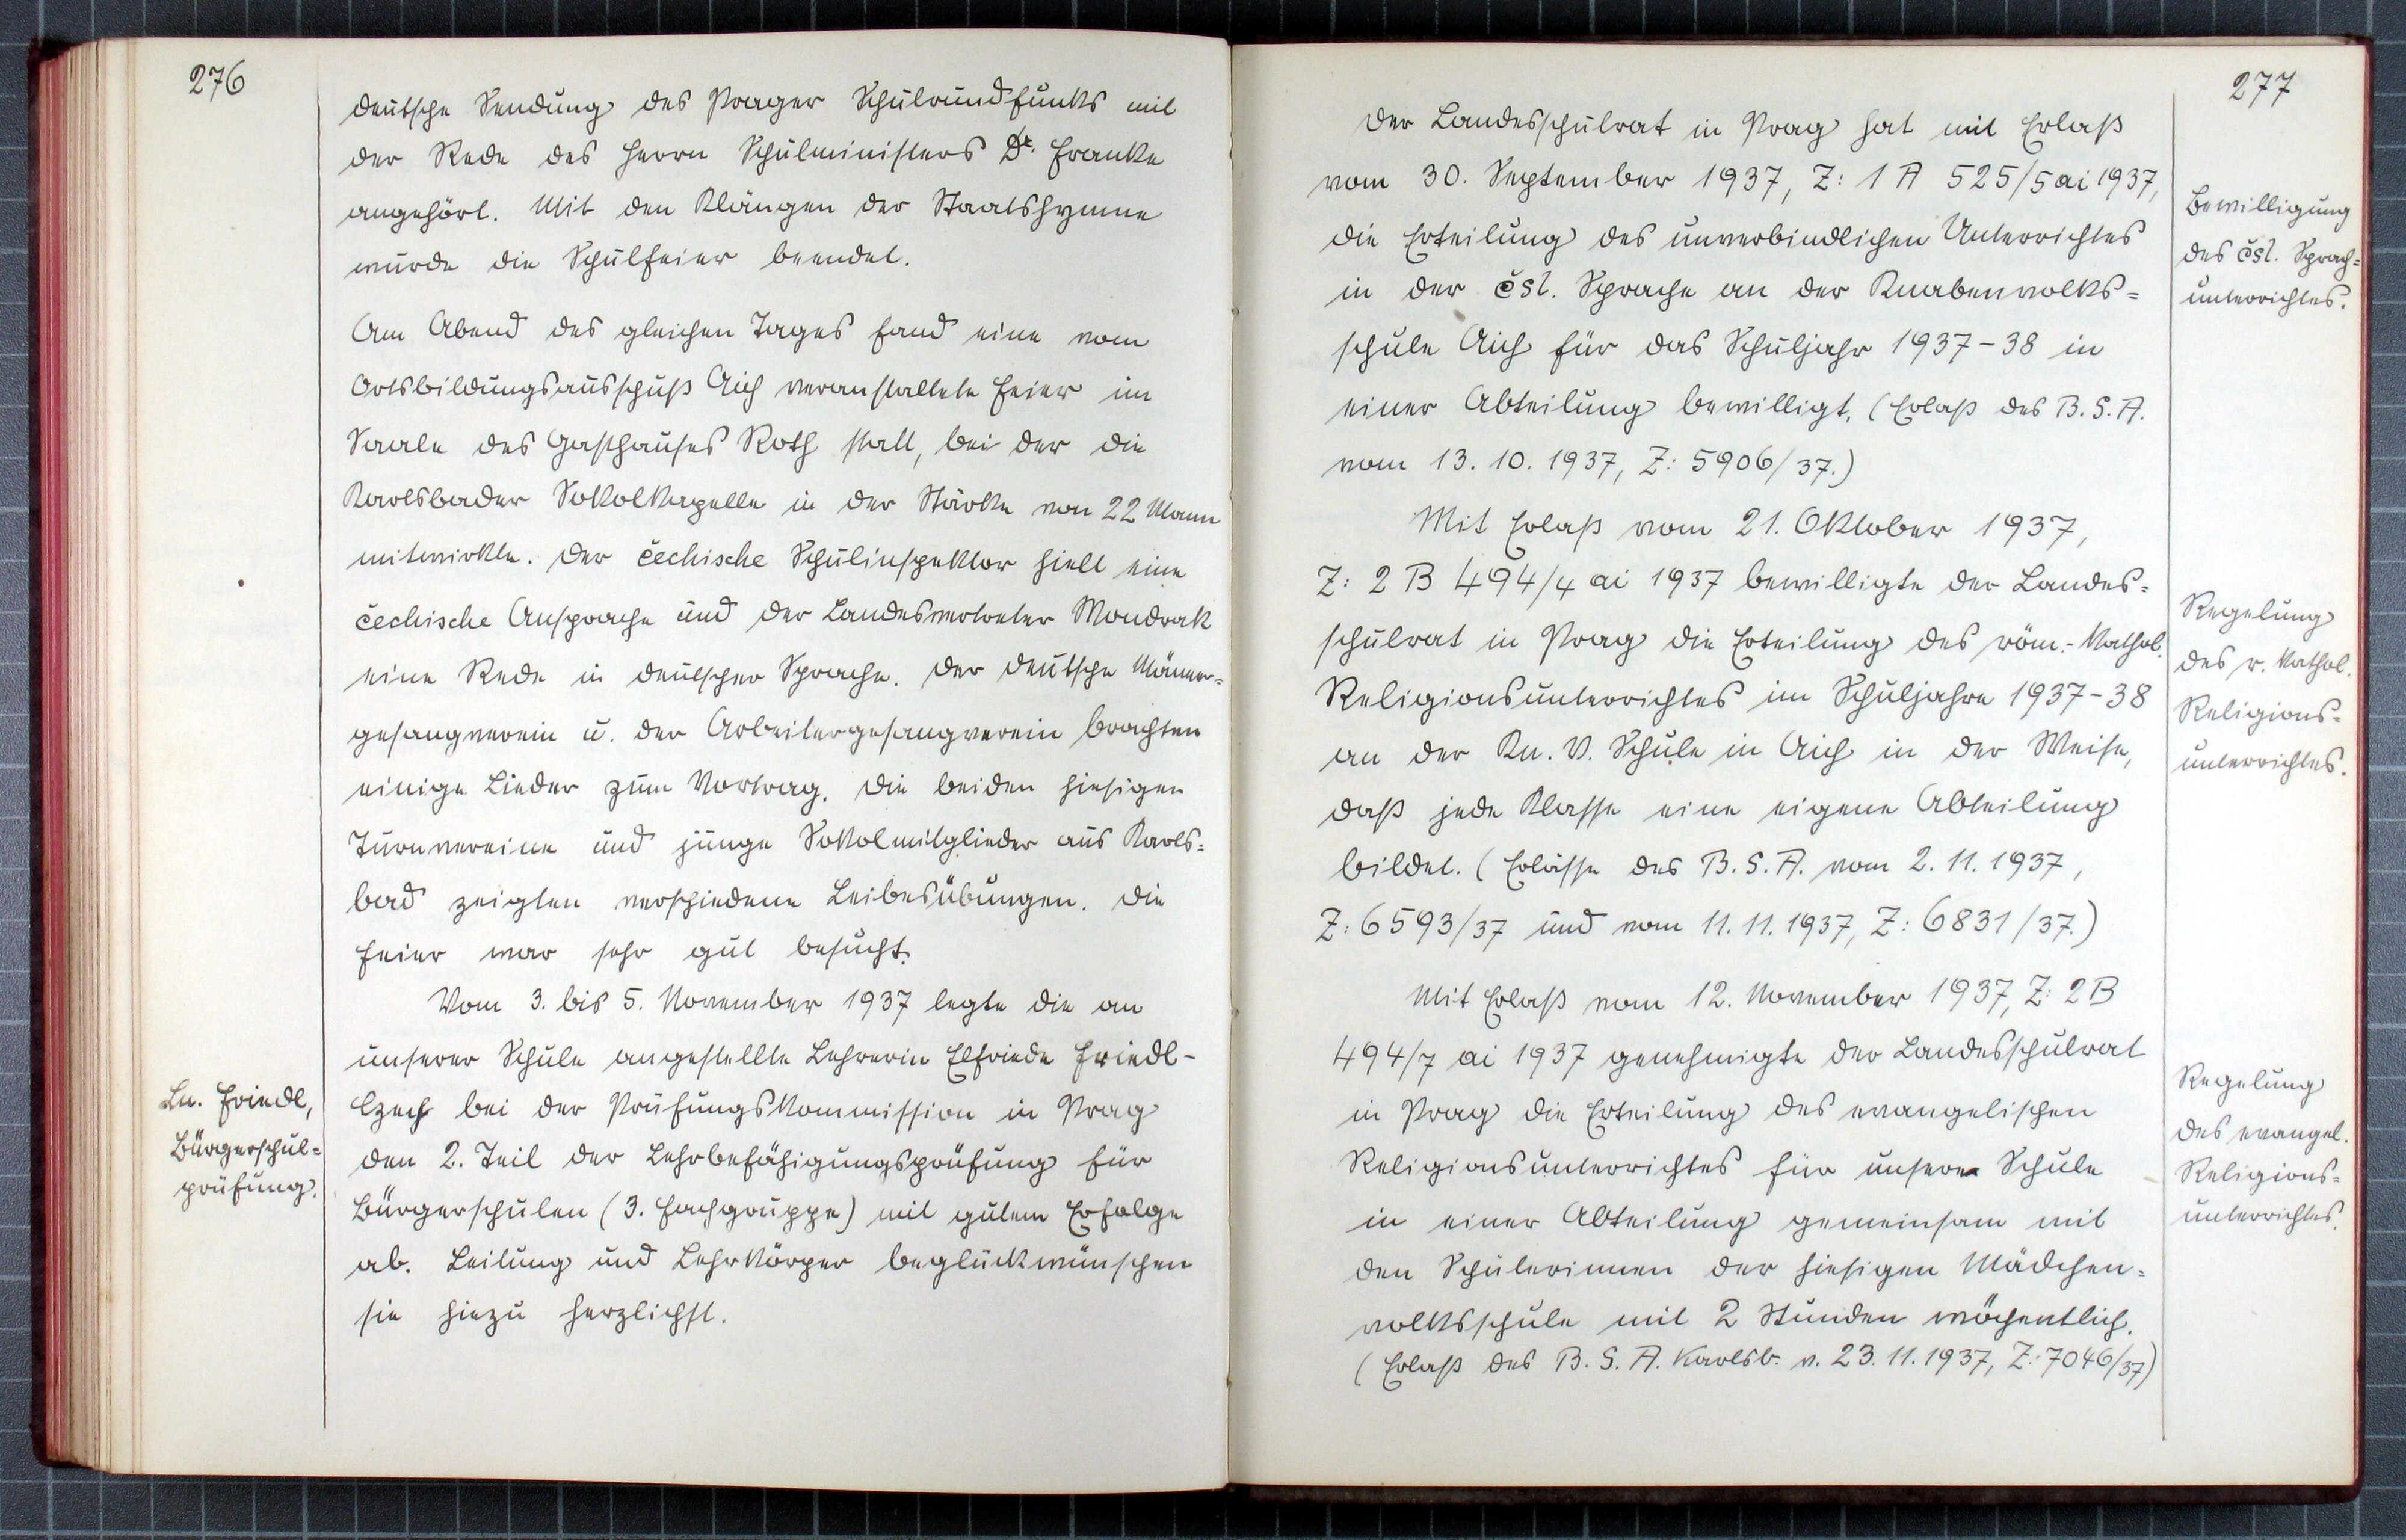 276
deutsche Sendung des Prager Schulrundfunks mit
der Rede des Herrn Schulministers Dr. Franke
angehört. Mit den Klängen der Staatshymne
wurde die Schulfeier beendet.
Am Abend des gleichen Tages fand eine vom
Ortsbildungsausschuß Aich veranstaltete Feier im
Saale des Gasthauses Roth statt, bei der die
Karlsbader Sokolkapelle in der Stärke von 22 Mann
mitwirkte. Der čechische Schulinspektor hielt eine
čechische Ansprache und der Landesvertreter Mondrak
eine Rede in deutscher Sprache. Der deutsche Männer=
gesangverein u. der Arbeitergesangverein brachten
einige Lieder zum Vortrag. Die beiden hiesigen
Turnvereine und junge Sokolmitglieder aus Karls=
bad zeigten verschiedene Leibesübungen. Die
Feier war sehr gut besucht.
Vom 3. bis 5. November 1937 legte die an
unserer Schule angestellte Lehrerin Elfriede Friedl-
Czech bei der Prüfungskommission in Prag
den 2. Teil der Lehrbefähigungsprüfung für
Bürgerschulen (3. Fachgruppe) mit gutem Erfolge
ab. Leitung und Lehrkörper beglückwünschen
sie hiezu herzlichst.
Ln. Friedl,
Bürgerschul=
prüfung.
277
Der Landesschulrat in Prag hat mit Erlaß
vom 30. September 1937, Z: 1 A 525/5 ai 1937,
die Erteilung des unverbindlichen Unterrichtes
in der čsl. Sprache an der Knabenvolks=
schule Aich für das Schuljahr 1937-38 in
einer Abteilung bewilligt. (Erlaß des B. S. A.
vom 13. 10. 1937, Z: 5906/37.)
Mit Erlaß vom 21. Oktober 1937,
Z: 2 B 494/4 ai 1937 bewilligte der Landes=
schulrat in Prag die Erteilung des röm.-kathol.
Religionsunterrichtes im Schuljahre 1937-38
an der Kn. V. Schule in Aich in der Weise,
daß jede Klasse eine eigene Abteilung
bildet. (Erlässe des B. S. A. vom 2. 11. 1937,
Z: 6593/37 und vom 11. 11. 1937, Z: 6831/37.)
Mit Erlaß vom 12. November 1937, Z: 2 B
494/7 ai 1937 genehmigte der Landesschulrat
in Prag die Erteilung des evangelischen
Religionsunterrichtes für unsere Schule
in einer Abteilung gemeinsam mit
den Schülerinnen der hiesigen Mädchen=
volksschule mit 2 Stunden wöchentlich.
(Erlaß des B. S. A. Karlsb. v. 23. 11. 1937, Z: 7046/37)
Bewilligung
des čsl. Sprach=
unterrichtes.
Regelung
des r. kathol.
Religions=
unterrichtes.
Regelung
des evangel.
Religions=
unterrichtes.